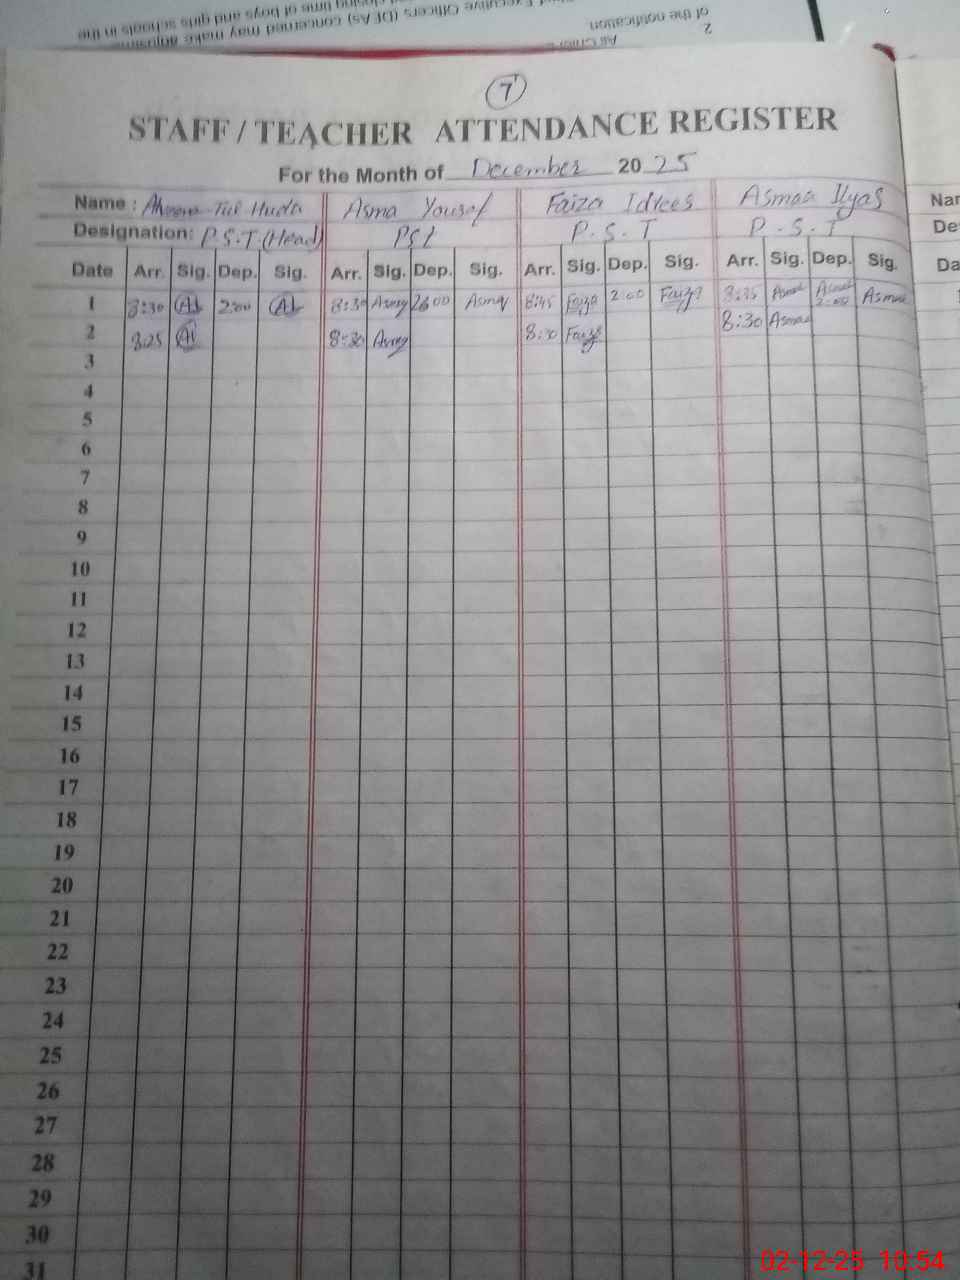 Executive Officers (DEAs) concerned may make
closing time of boys and girls schools in the
of the notification
2
7
STAFF / TEACHER ATTENDANCE REGISTER
For the Month of December 2025
Name : Huda Asma Yousaf Faiza Idrees Asmaa Ilyas
Designation: P.S.T (Head) PST P.S.T P.S.T
Date Arr. Sig. Dep. Sig. Arr. Sig. Dep. Sig. Arr. Sig. Dep. Sig. Arr. Sig. Dep. Sig.
1 8:30 2:00 8:30 Asma Asma 8:45 Faiza 2:00 Faiza 8:35 Asmaa 2:00 Asmaa
2 8:25 8:30 Asma 8:30 Faiza 8:30 Asmaa
3
4
5
6
7
8
9
10
11
12
13
14
15
16
17
18
19
20
21
22
23
24
25
26
27
28
29
30
31
02-12-25 10:54